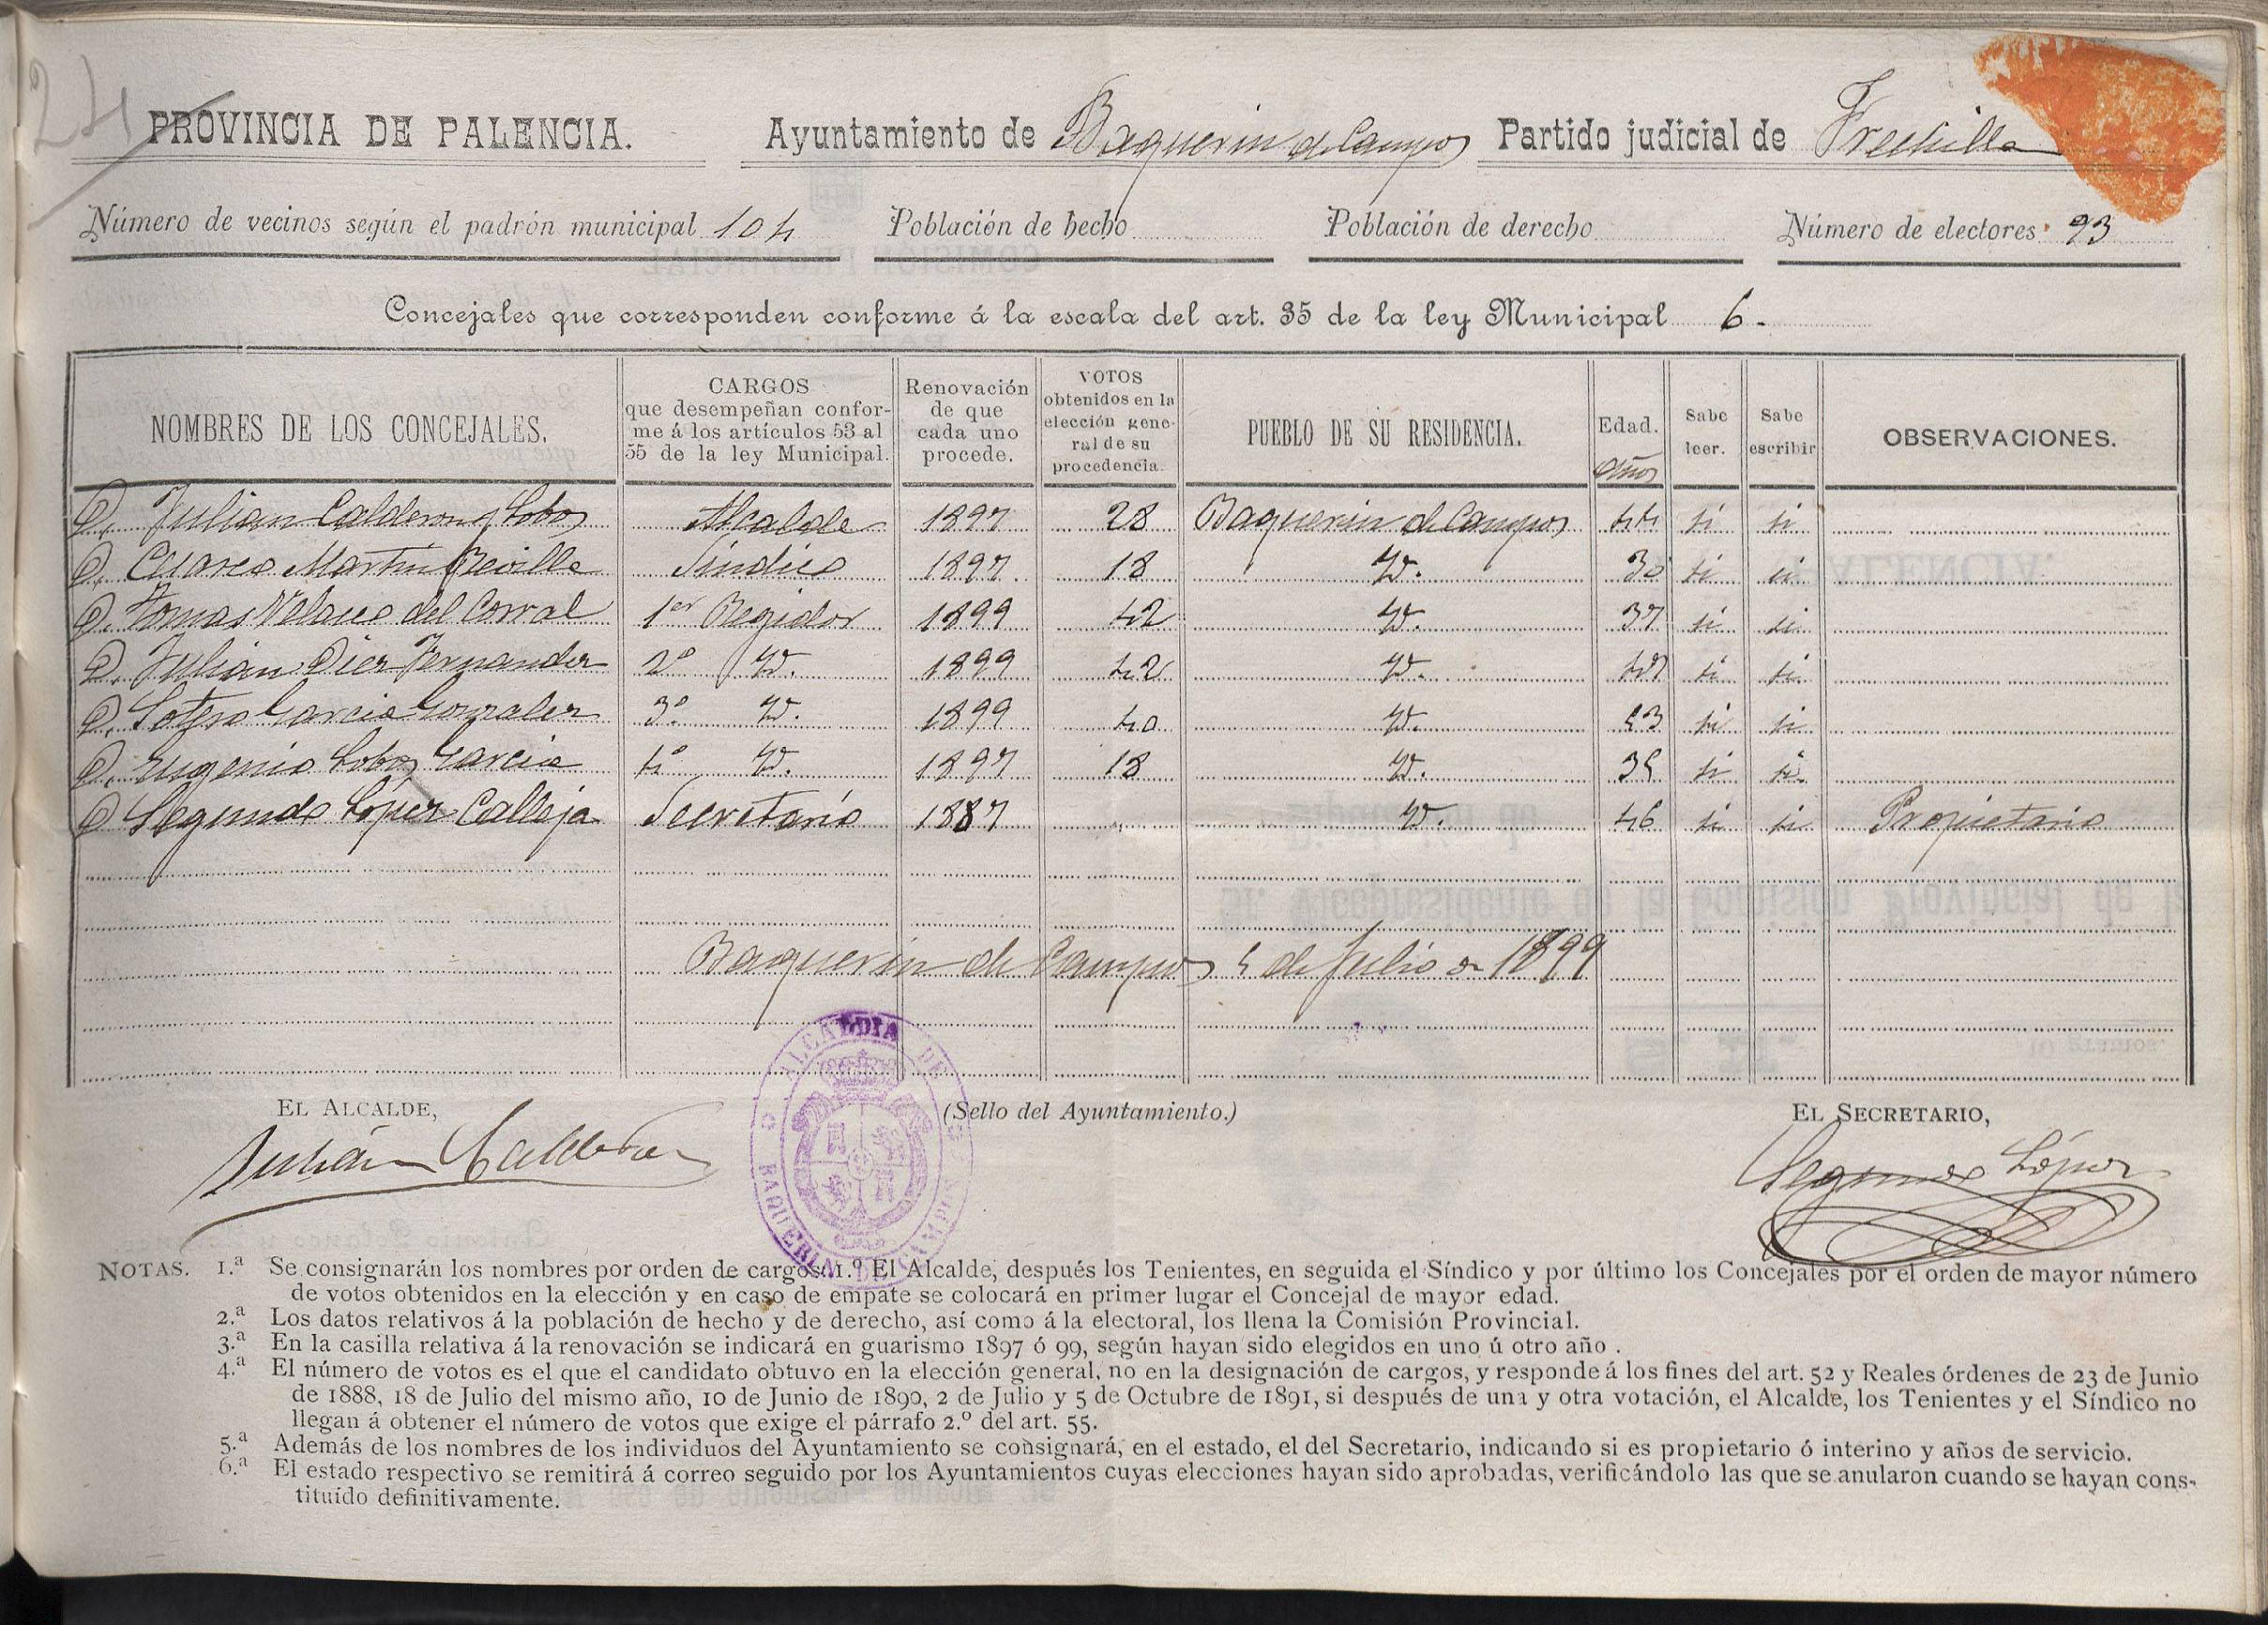 24
PROVINCIA DE PALENCIA. Ayuntamiento de Baquerin de Campos Partido judicial de Frechilla
Número de vecinos según el padrón municipal 104 Población de hecho Población de derecho Número de electores 93
Concejales que corresponden conforme á la escala del art. 35 de la ley Municipal 6.
NOMBRES DE LOS CONCEJALES. CARGOS que desempeñan confor- me á los artículos 53 al 55 de la ley Municipal. Renovación de que cada uno procede. VOTOS obtenidos en la elección gene- ral de su procedencia. PUEBLO DE SU RESIDENCIA. Edad. Años Sabe leer. Sabe escribir OBSERVACIONES.
D. Julian Calderon y Lobos Alcalde 1897 28 Baquerin de Campos 44 si si
D. Cesareo Martin Revilla Sindico 1897. 18 Id. 30 si si
D. Tomas Velasco del Corral 1er Regidor 1899 42 Id. 37 si si
D. Julian Diez Fernandez 2º Id. 1899 42 Id. 47 si si
D. Sotero Garcia Gonzalez 3º Id. 1899 40 Id. 53 si si
D. Eugenio Lobos Garcia 4º Id. 1897 18 Id. 35 si si
D. Segundo López Calleja Secretario 1887 Id. 46 si si Propietario
Baquerin de Campos 5 de Julio de 1899
EL ALCALDE, (Sello del Ayuntamiento.) EL SECRETARIO,
Julián Calderon Segundo López
ALCALDIA DE BAQUERIN DE CAMPOS
NOTAS. 1.ª Se consignarán los nombres por orden de cargos: 1.º El Alcalde, después los Tenientes, en seguida el Síndico y por último los Concejales por el orden de mayor número
de votos obtenidos en la elección y en caso de empate se colocará en primer lugar el Concejal de mayor edad.
2.ª Los datos relativos á la población de hecho y de derecho, así como á la electoral, los llena la Comisión Provincial.
3.ª En la casilla relativa á la renovación se indicará en guarismo 1897 ó 99, según hayan sido elegidos en uno ú otro año .
4.ª El número de votos es el que el candidato obtuvo en la elección general, no en la designación de cargos, y responde á los fines del art. 52 y Reales órdenes de 23 de Junio
de 1888, 18 de Julio del mismo año, 10 de Junio de 1890, 2 de Julio y 5 de Octubre de 1891, si después de una y otra votación, el Alcalde, los Tenientes y el Síndico no
llegan á obtener el número de votos que exige el párrafo 2.º del art. 55.
5.ª Además de los nombres de los individuos del Ayuntamiento se consignará, en el estado, el del Secretario, indicando si es propietario ó interino y años de servicio.
6.ª El estado respectivo se remitirá á correo seguido por los Ayuntamientos cuyas elecciones hayan sido aprobadas, verificándolo las que se anularon cuando se hayan cons-
tituído definitivamente.